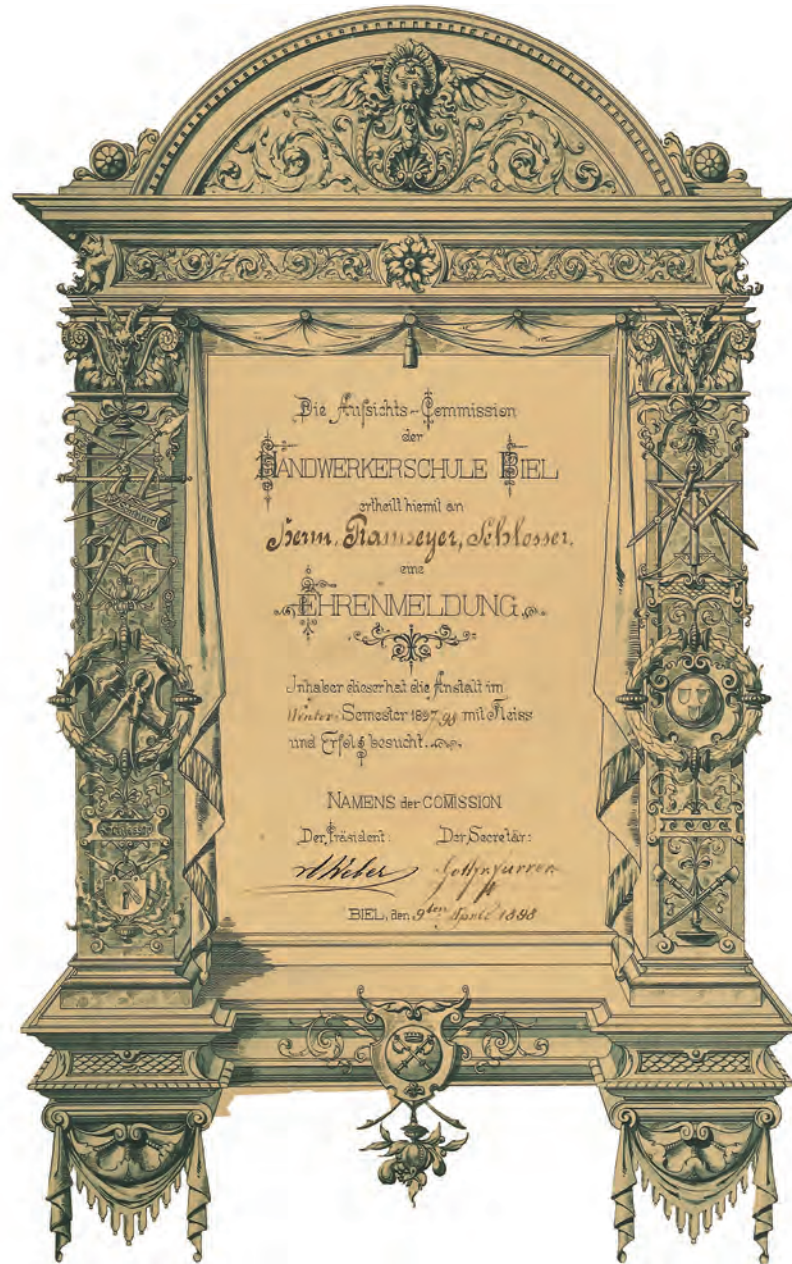 Die Aufsichts-Commission
der
HANDWERKERSCHULE BIEL
ertheilt hiemit an
Herrn. Ramseyer, Schlosser.
eine
EHRENMELDUNG
Inhaber dieser hat die Anstalt im
Winter-Semester 1897/98 mit Fleiss
und Erfolg besucht.
NAMENS der COMISSION
Der Präsident: Der Secretär:
A Weber
BIEL, den 9ten April 1898